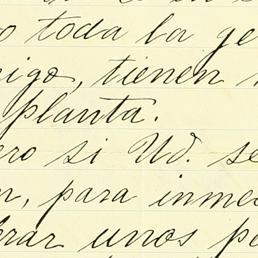 o toda la ge
igo, tienen
planta.
ero si Ud. se
n, para inme
rar unos pe